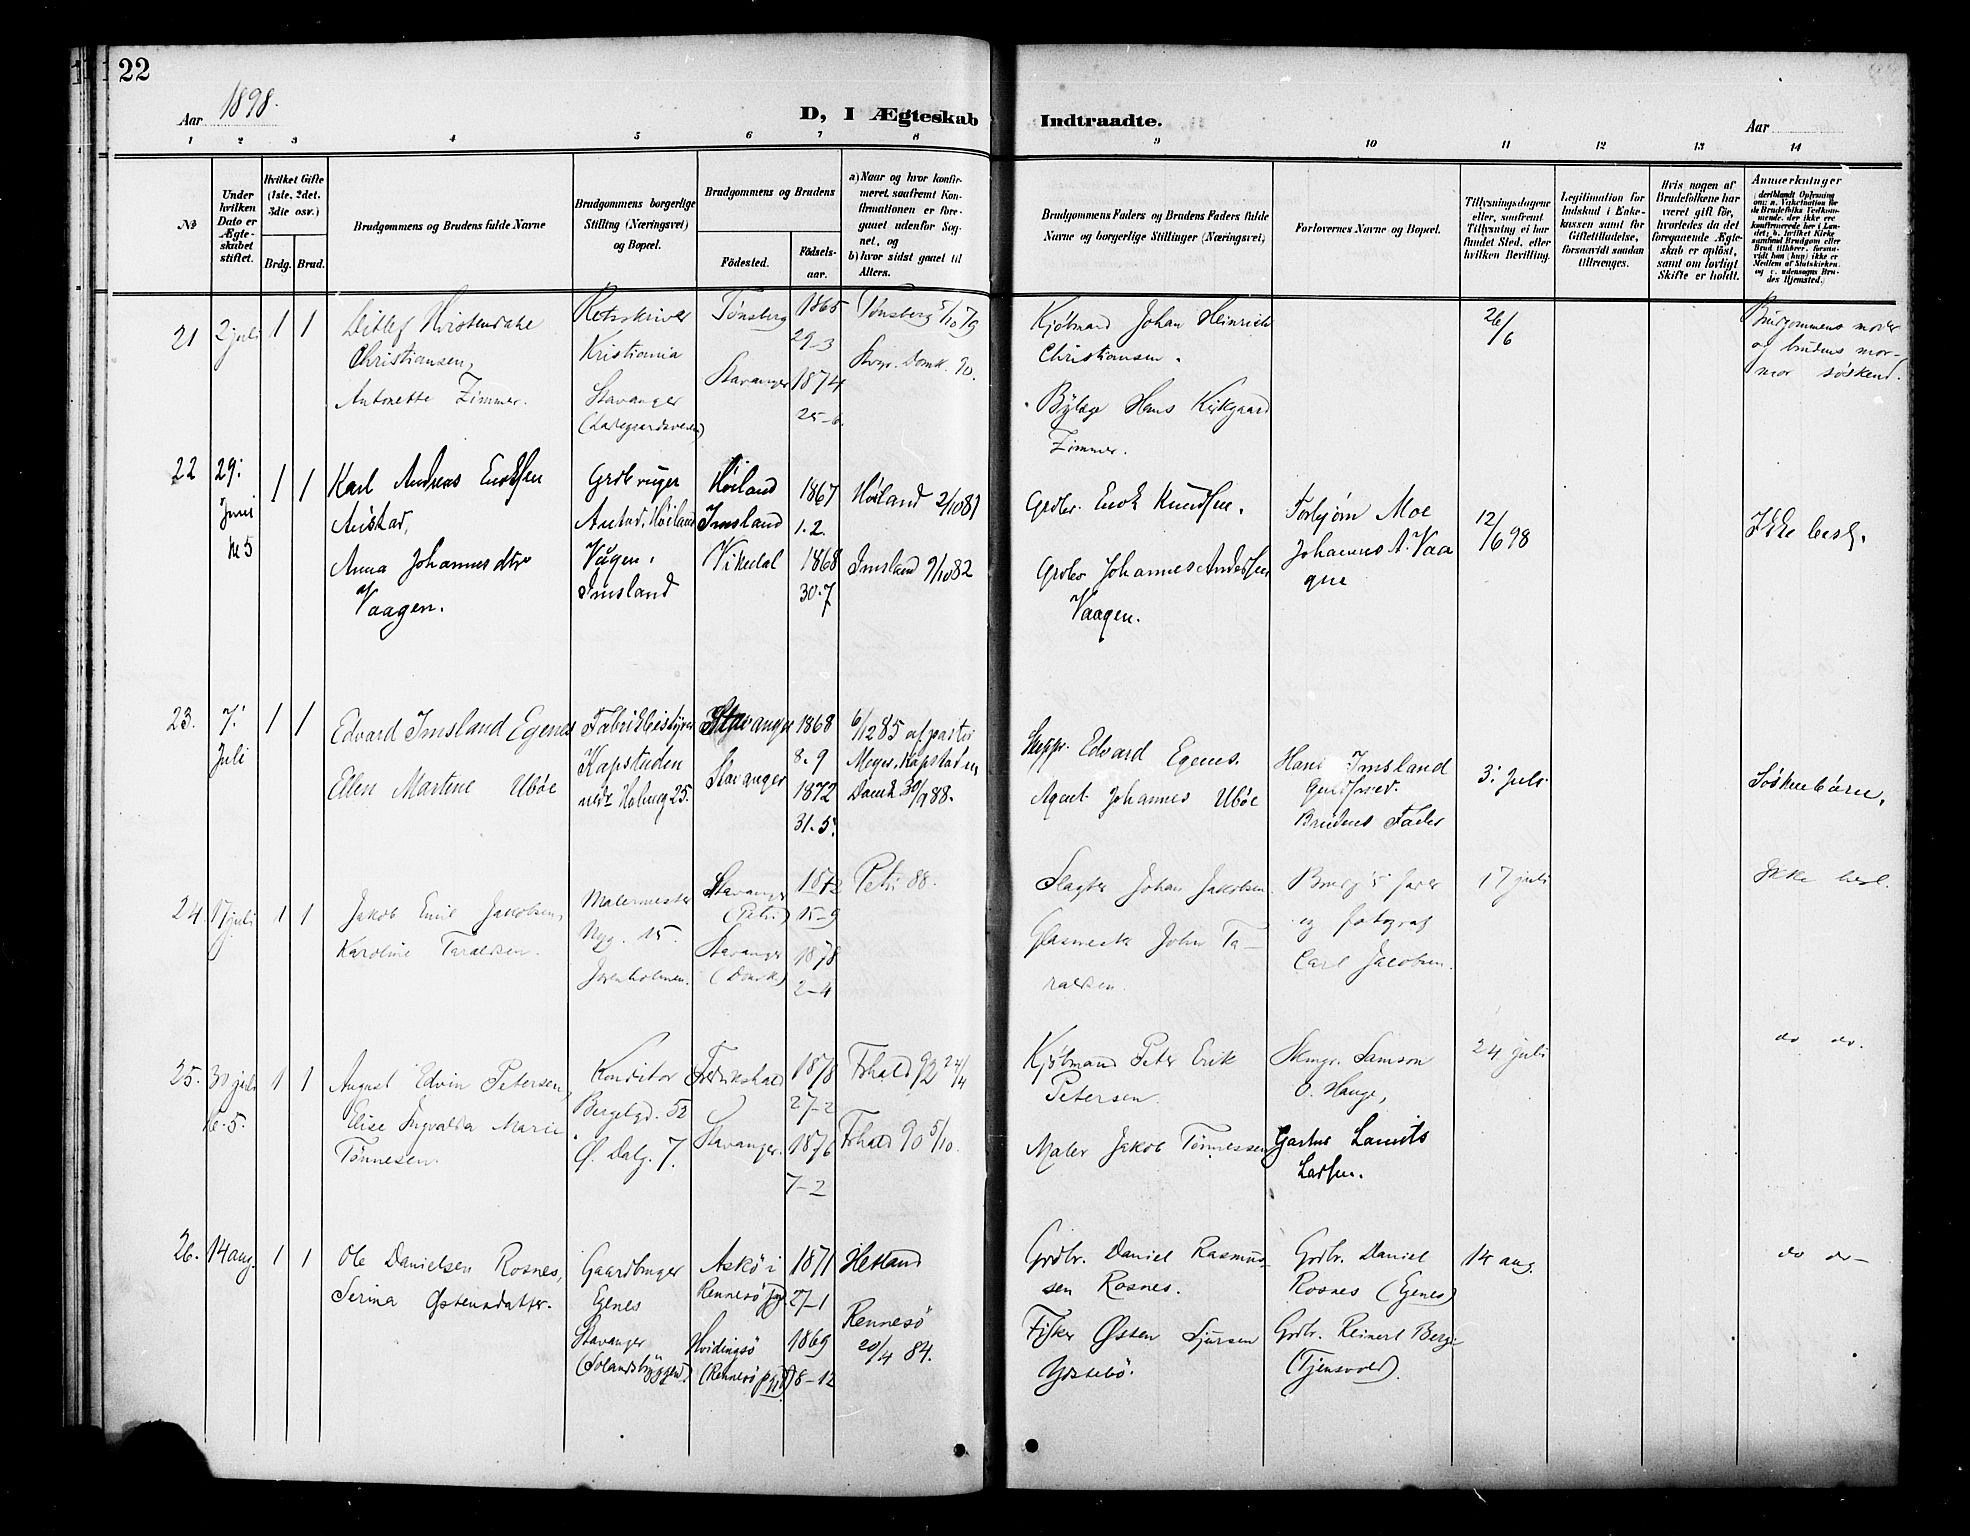 22
Aar 1898.
D, I Ægteskab Indtraadte.
Aar
1 2 3 4 5 6 7 8 9 10 11 12 13 14
No
Under hvilken Dato er Ægteskabet stiftet.
Hvilket Gifte (1ste, 2det, 3die osv.)
Brdg. Brud.
Brudgommens og Brudens fulde Navne
Brudgommens borgerlige Stilling (Næringsvei) og Bopæl.
Brudgommens og Brudens
Fødested.
Fødselsaar.
a) Naar og hvor konfirmeret, saafremt Konfirmationen er foregaaet udenfor Sognet, og
b) hvor sidst gaaet til Alters.
Brudgommens Faders og Brudens Faders fulde Navne og borgerlige Stillinger (Næringsvei)
Forlovernes Navne og Bopæl.
Tillysningsdagene eller, saafremt Tillysning ei har fundet Sted, efter hvilken Bevilling.
Legitimation for Indskud i Enkekassen samt for Giftetilladelse, forsaavidt saadan tiltrænges.
Hvis nogen af Brudefolkene har været gift før, hvorledes da det foregaaende Ægteskab er opløst, samt om lovligt Skifte er holdt.
Anmærkninger
21 2 juli 1 1
Ditlef Hvistendahl
Christiansen,
Antonette Zimmer.
Retsskriver
Kristiania
Stavanger
(Ladegaardsveien)
Tønsberg 1865
29-3
Stavanger 1874
25-6
Tønsberg 5/10 79
Svgr. Domk. 90.
Kjøbmand Johan Heinrich
Christiansen.
Bylæge Hans Kirkgaard
Zimmer.
26/6
Brudgommens moder
og brudens mor-
mor søskend.
22 29: Juni kl 5 1 1
Karl Andreas Enoksen
Austad,
Anna Johannesdtr
Vaagen.
Grdbruger
Austad, Høiland
Vågen,
Imsland
Høiland
Imsland
Vikedal
1867
1.2.
1868
30.7
Høiland 2/10 81
Imsland 9/10 82
Grdbr. Enok Knudsen.
Grdbr Johannes Andersen
Vaagen.
Torbjørn Moe
Johannes A. Vaa
gen
12/6 98
Ikke besl.
23. 7: Juli 1 1
Edvard Imsland Egenes
Ellen Martine Ubøe
Fabrikbestyrer
Kapstaden
nedr Holmeg 25.
Stavanger
Stavanger
1868
8.9
1872
31.5.
6/12 85 af pastor
Meyer, Kapstaden
Domk 30/9 88.
Skippr. Edvard Egenes.
Agent Johannes Ubøe
Hans Imsland
Guldsmed.
Brudens Fader
3: Juli
Søskenbørn.
24. 17 juli 1 1
Jakob Emil Jakobsen,
Karoline Taraldsen.
Malermester
Nyg. 15.
Jorenholmen.
Stavanger
(Petri)
Stavanger
(Domk)
1872
15-9
1878
2-4
Petri 88.
Slagter Johan Jakobsen.
Glasmest. John Ta-
raldsen.
Brudg's fader
og fotograf
Carl Jacobsen.
17 juli
Ikke besl.
25. 30 juli kl. 5. 1 1
August Edvin Petersen,
Elise Ingvalda Marie
Tønnesen.
Konditor
Bergelgd. 52
Ø. Dalg. 7.
Fredrikshald
Stavanger.
1878
27-2
1876
7-2
Frhald 92 24/4
Frhald 90 5/10.
Kjøbmand Peter Erik
Petersen.
Maler Jakob Tønnessen
Samson
O. Hauge,
Gartner Laurits
Larsen.
24 juli
do do.
26. 14 aug. 1 1
Ole Danielsen Rosnes,
Serina Østensdatter.
Gaardbruger
Egenes
Stavanger
Askø i
Rennesø
Hvidingsø
1871
27-1
1869
8-12
Hetland
Rennesø
20/4 84.
Grdbr. Daniel Rasmus-
sen Rosnes.
Fisker Østen Sjursen
Ydstebø.
Grdbr. Daniel
Rosnes (Egenes)
Grdbr. Reinert Berge
(Tjensvold)
14 aug.
do do-